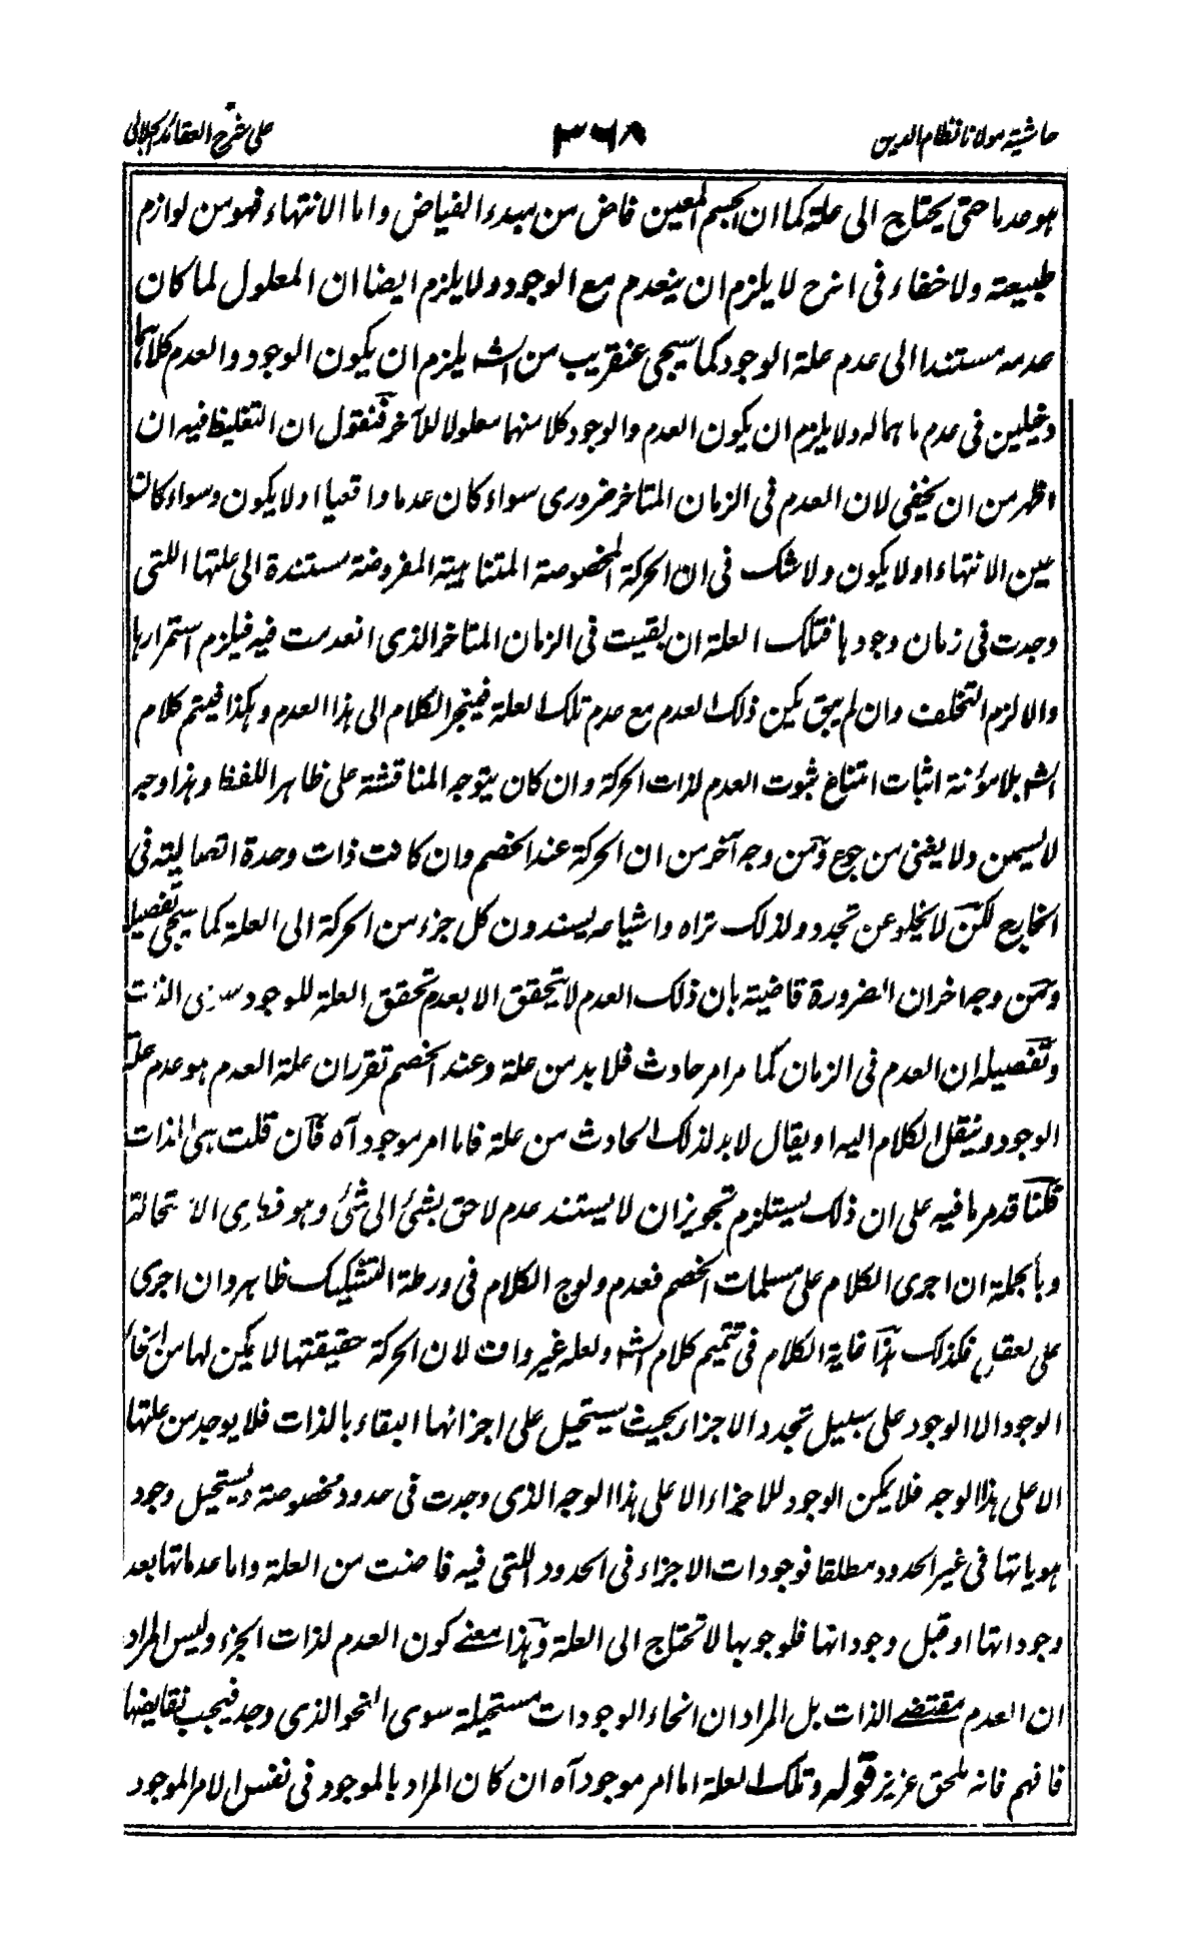 حاشیة مولانا نظام الدین ۳۶۸ علی شرح العقائد الجلالی
هو عدما حتى يحتاج الى علة كما ان الجسم المعين فاض من مبدء الفياض واما الانتهاء فهو من لوازم
طبيعته ولا خفاء فى انه ح لا يلزم ان ينعدم مع الوجود ولا يلزم ايضا ان المعلول لما كان
عدمه مستندا الى عدم علة الوجود كما سيجى عنقريب من الشه يلزم ان يكون الوجود والعدم كلاهما
دخيلين فى عدم ما هما له ولا يلزم ان يكون العدم والوجود كلا منهما معلولا للآخر فنقول ان التغليظ فيه ان
اظهر من ان يخفى لان العدم فى الزمان المتاخر ضرورى سواء كان عدما واقعيا اولا يكون وسواء كان
عين الانتهاء اولا يكون ولا شك فى ان الحركة المخصوصة المتناهية المفروضة مستندة الى علتها اللتى
وجدت فى زمان وجودها فتلك العلة ان بقيت فى الزمان المتاخر الذى انعدمت فيه فيلزم استمرارها
والا لزم التخلف وان لم يبق يكن ذلك العدم مع عدم تلك العلة فينجر الكلام الى هذا العدم وهكذا فيتم كلام
الشه بلا مؤنة اثبات امتناع ثبوت العدم لذات الحركة وان كان يتوجه المناقشة على ظاهر اللفظ وهذا وجه
لا يسمن ولا يغنى من جوع ومن وجه آخر من ان الحركة عند الخصم وان كانت ذات وحدة اتصالية فى
الخارج لكن لا يخلو عن تجدد ولذلك تراه واشياعه يسندون كل جزء من الحركة الى العلة كما سيجى تفصيلا
ومن وجه اخر ان الضرورة قاضية بان ذلك العدم لا يتحقق الا بعدم تحقق العلة للوجود سوى الذات
وتفصيله ان العدم فى الزمان كما مر امر حادث فلا بد من علة وعند الخصم تقرر ان علة العدم هو عدم علة
الوجود وينقل الكلام اليه او يقال لا بد لذلك الحادث من علة فاما امر موجود آه فان قلت هى الذات
قلنا قد مر ما فيه على ان ذلك يستلزم تجويز ان لا يستند عدم لاحق بشئ الى شئ وهو فطرى الاستحالة
وبالجملة ان اجرى الكلام على مسلمات الخصم فعدم ولوج الكلام فى ورطة التشكيك ظاهر وان اجرى
على لعقل فكذلك هذا غاية الكلام فى تتميم كلام الشه ولعله غير واف لان الحركة حقيقتها لا يمكن لها من انحاء
الوجود الا الوجود على سبيل تجدد الاجزاء بحيث يستحيل على اجزائها البقاء بالذات فلا يوجد من علتها
الا على هذا الوجه فلا يمكن الوجود للاجزاء الا على هذا الوجه الذى وجدت فى حدود مخصوصة ويستحيل وجود
هوياتها فى غير الحدود مطلقا فوجودات الاجزاء فى الحدود اللتى فيه فاضت من العلة واما عدماتها بعد
وجوداتها او قبل وجوداتها فلوجوبها لا تحتاج الى العلة وهذا معنے كون العدم لذات الجزء وليس المراد
ان العدم مقتضے الذات بل المراد ان انحاء الوجودات مستحيلة سوى النحو الذى وجد فيجب نقايضها
فافهم فانه ملحق عزيز قوله وتلك العلة اما امر موجود آه ان كان المراد بالموجود فى نفس الامر الموجود